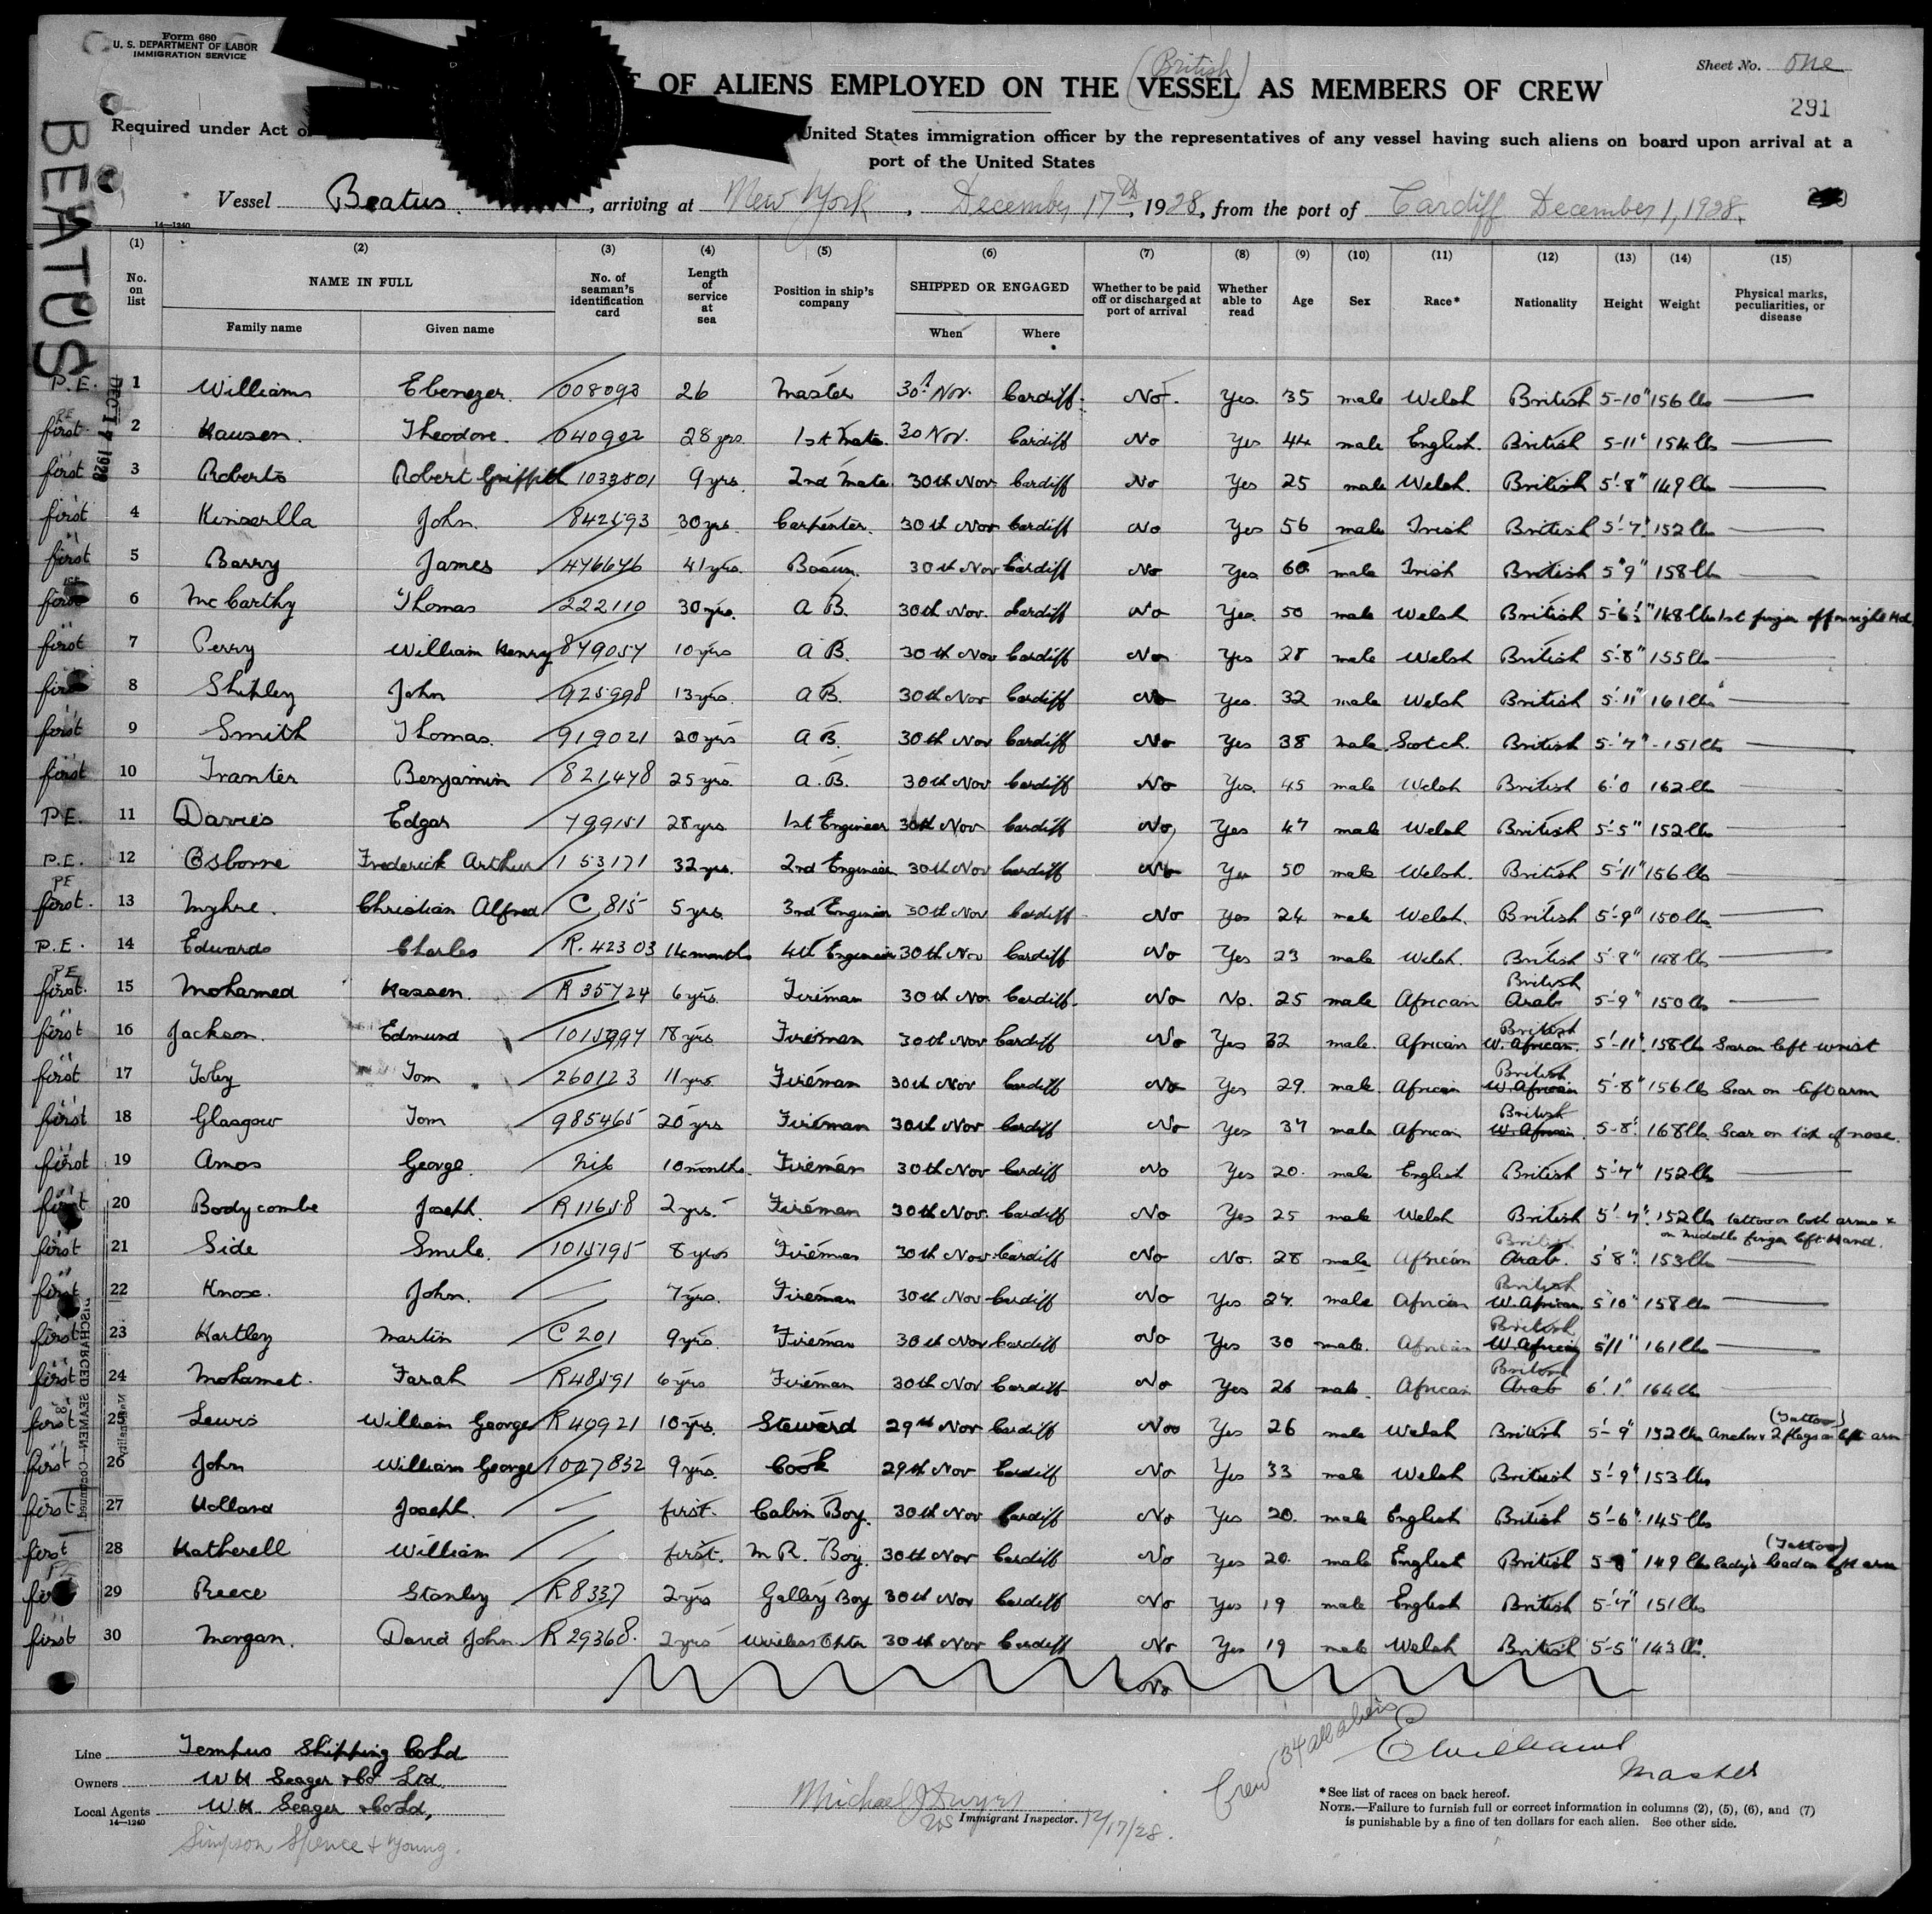 Form 680
U. S. DEPARTMENT OF LABOR
IMMIGRATION SERVICE
Sheet No. One
(British)
OF ALIENS EMPLOYED ON THE VESSEL AS MEMBERS OF CREW
291
Required under Act United States immigration officer by the representatives of any vessel having such aliens on board upon arrival at a
port of the United States
BEATUS
Vessel Beatus, arriving at New York, December 17th, 1928, from the port of Cardiff December 1, 1928.
14—1240
(1) (2) (3) (4) (5) (6) (7) (8) (9) (10) (11) (12) (13) (14) (15)
No. on list NAME IN FULL Family name Given name No. of seaman's identification card Length of service at sea Position in ship's company SHIPPED OR ENGAGED When Where Whether to be paid off or discharged at port of arrival Whether able to read Age Sex Race* Nationality Height Weight Physical marks, peculiarities, or disease
DEC 17 1928
P.E. 1 Williams Ebenezer. 008093 26 Master 30th Nov. Cardiff. No. Yes. 35 male Welsh British 5-10" 156 lbs
PE first 2 Hansen. Theodore. 040902 28 yrs. 1st Mate. 30 Nov. Cardiff No Yes 44 male English. British 5-11" 154 lbs
first 3 Roberts Robert Griffith 1033801 9 yrs. 2nd Mate. 30th Nov Cardiff No Yes 25 male Welsh. British 5'-8" 149 lbs
first 4 John. 30 yrs. Carpenter. 30th Nov Cardiff No Yes 56 male Irish British 5'-7" 152 lbs
first 5 Barry James 476676 41 yrs. Bosun. 30th Nov Cardiff No Yes. 60 male Irish British 5'9" 158 lbs
first 6 McCarthy Thomas 222110 30 yrs. A B. 30th Nov. Cardiff No Yes. 50 male Welsh British 5-6½" 148 lbs 1st finger off on right Hd.
first 7 Perry William Henry 879057 10 yrs A B. 30th Nov Cardiff No Yes 28 male Welsh British 5'-8" 155 lbs
first 8 Shipley John 925998 13 yrs. A B. 30th Nov Cardiff No Yes. 32 male Welsh British 5'-11" 161 lbs
first 9 Smith Thomas. 919021 20 yrs A B. 30th Nov Cardiff No Yes 38 male Scotch. British 5-'7" 151 lbs
first 10 Tranter Benjamin 821478 25 yrs. A. B. 30th Nov Cardiff No Yes. 45 male Welsh British 6'0 162 lbs
P.E. 11 Davies Edgar 799151 28 yrs. 1st Engineer 30th Nov Cardiff No Yes 47 male Welsh British 5'-5" 152 lbs
P.E. 12 Osborne Frederick Arthur 153171 32 yrs. 2nd Engineer 30th Nov Cardiff No Yes 50 male Welsh. British 5'-11" 156 lbs
PE first. 13 Myhre. Christian Alfred C 815 5 yrs. 3rd Engineer 30th Nov Cardiff No Yes 24 male Welsh. British 5'-9" 150 lbs.
P.E. 14 Edwards Charles R. 42303 14 months 4th Engineer 30th Nov Cardiff No Yes 23 male Welsh. British 5'8" lbs
PE first. 15 Mohamed Hassen. R 35724 6 yrs. Fireman 30th Nov Cardiff. No No. 25 male African British Arab 5'-9" 150 lbs
first 16 Jackson. Edmund 18 yrs. Fireman 30th Nov Cardiff No Yes 32 male. African British W. African. 5'-11" 158 lbs Scar on left wrist
first 17 Toby Tom 260123 11 yrs Fireman 30th Nov Cardiff No Yes 29. male African British W. African 5'-8" 156 lbs Scar on left arm
first 18 Glasgow Tom 985465 20 yrs Fireman 30th Nov Cardiff No Yes 37 male African British W. African. 5-8" 168 lbs Scar on of nose.
first 19 Amos George. Nil 10 months. Fireman 30th Nov Cardiff No Yes 20. male English British 5'-7" 152 lbs
first 20 Bodycombe Joseph. R11658 2 yrs. Fireman 30th Nov. Cardiff No Yes 25 male Welsh British 5'-7" 152 lbs tattoo on both arms &
on middle finger left Hand.
first 21 Side Smile. 1015795 8 yrs Fireman 30th Nov Cardiff No No. 28 male African British Arab. 5'8" 153 lbs
first 22 Knox. John. — 7 yrs. Fireman 30th Nov Cardiff No Yes 24. male African British W. African. 5'10" 158 lbs
first 23 Hartley Martin C 201 9 yrs. Fireman 30th Nov Cardiff No Yes 30 male. African British W. African 5'11" 161 lbs
first 24 Mohamet. Farah R48591 6 yrs Fireman 30th Nov Cardiff No Yes 26 male. African British Arab 6'.1" 164 lbs
first 25 Lewis William George R40921 10 yrs. Steward 29th Nov Cardiff No Yes 26 male Welsh British 5'-9" 152 lbs Anchor & 2 flags on left arm (Tattoo)
first 26 John William George 1007832 9 yrs. Cook 29th Nov Cardiff No Yes 33 male Welsh British 5'-9" 153 lbs
first 27 Holland Joseph. — first. Cabin Boy. 30th Nov Cardiff No Yes 20. male English British 5'-6" 145 lbs
first 28 Hatherell William — first. M R. Boy. 30th Nov Cardiff No Yes 20. male English British 149 lbs lady's head on left arm (Tattoo)
first 29 Reece Stanley R8337 2 yrs Galley Boy 30th Nov Cardiff No Yes 19 male English British 5'-7" 151 lbs
first 30 Morgan. David John. R 29368. 2 yrs Wireless Optr 30th Nov Cardiff No Yes 19 male Welsh British 5'-5" 143 lbs.
No
DISCHARGED SEAMEN
Line Tempus Shipping Co Ld
Owners W H Seager & Co Ltd.
Local Agents W H. Seager & Co Ld,
14—1240
Simpson Spence & Young.
Michael J Dwyer
Immigrant Inspector. 12/17/28.
Crew 34 all aliens
E Williams
Master
*See list of races on back hereof.
NOTE.—Failure to furnish full or correct information in columns (2), (5), (6), and (7)
is punishable by a fine of ten dollars for each alien. See other side.